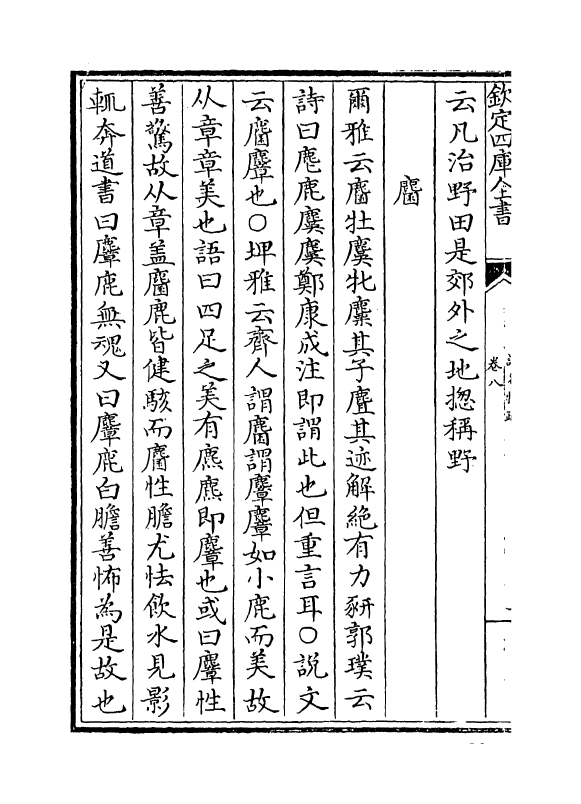 欽定四庫全書
卷八
云凡治野田是郊外之地揔稱野
麕
爾雅云麕牡麌牝麜其子麆其迹解絶有力豜郭璞云
詩曰麀鹿麌麌鄭康成注即謂此也但重言耳〇説文
云麕麞也〇埤雅云齊人謂麕謂麞麞如小鹿而美故
从章章美也語曰四足之美有麃麃即麞也或曰麞性
善驚故从章盖麕鹿皆健駭而麕性膽尤怯飲水見影
輒奔道書曰麞鹿無魂又曰麞鹿白膽善怖為是故也